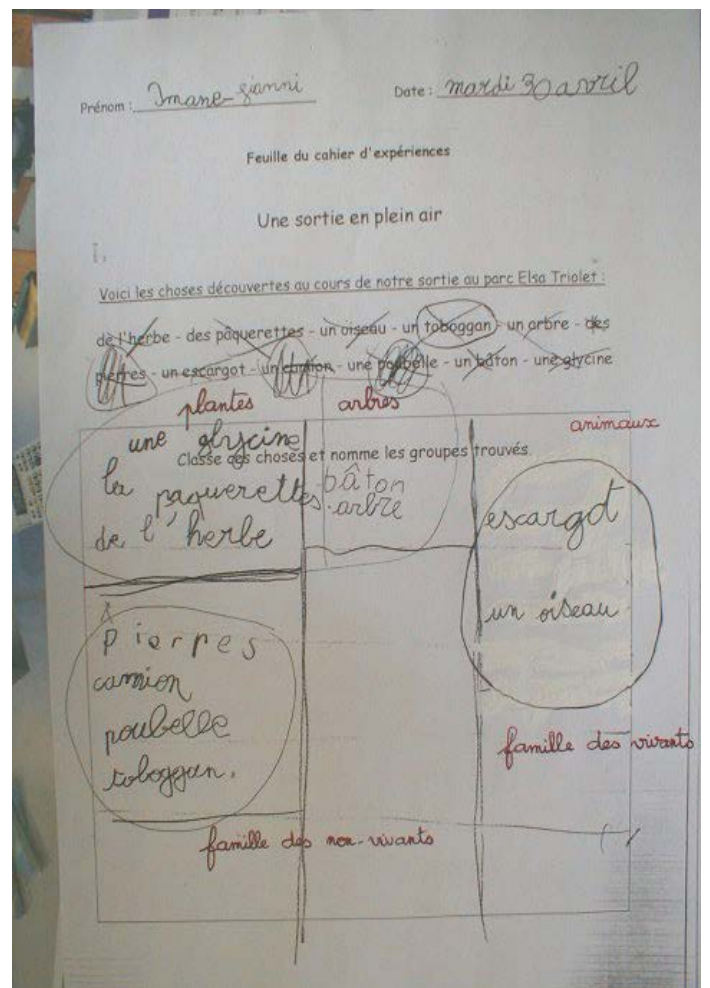 Prénom : Imane-gianni Date : mardi 30 avril
Feuille du cahier d'expériences
Une sortie en plein air
I.
Voici les choses découvertes au cours de notre sortie au parc Elsa Triolet :
de l'herbe - des pâquerettes - un oiseau - un toboggan - un arbre - des
pierres - un escargot - un camion - une poubelle - un bâton - une glycine
plantes arbres animaux
une glycine
Classe ces choses et nomme les groupes trouvés.
la paquerettes bâton
de l'herbe arbre escargot
un oiseau
pierpes
camion
poubelle
toboggan.
famille des vivants
famille des non-vivants